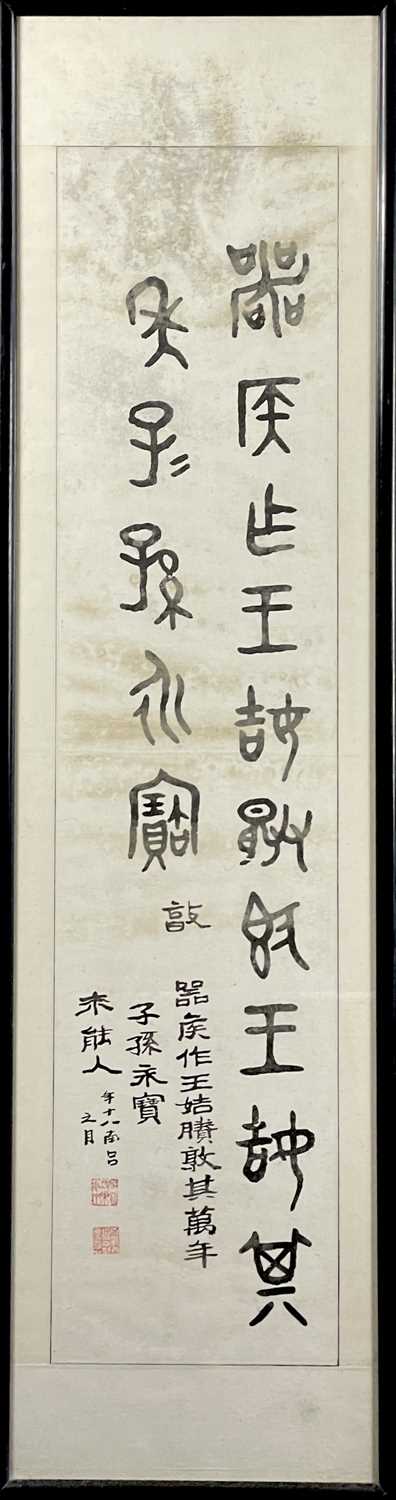 器侯乍王姞賸𣪘王姞其
萬子孫永寶
器侯作王姞賸敦其萬年
子孫永寶
未能人
年十八南呂
之月